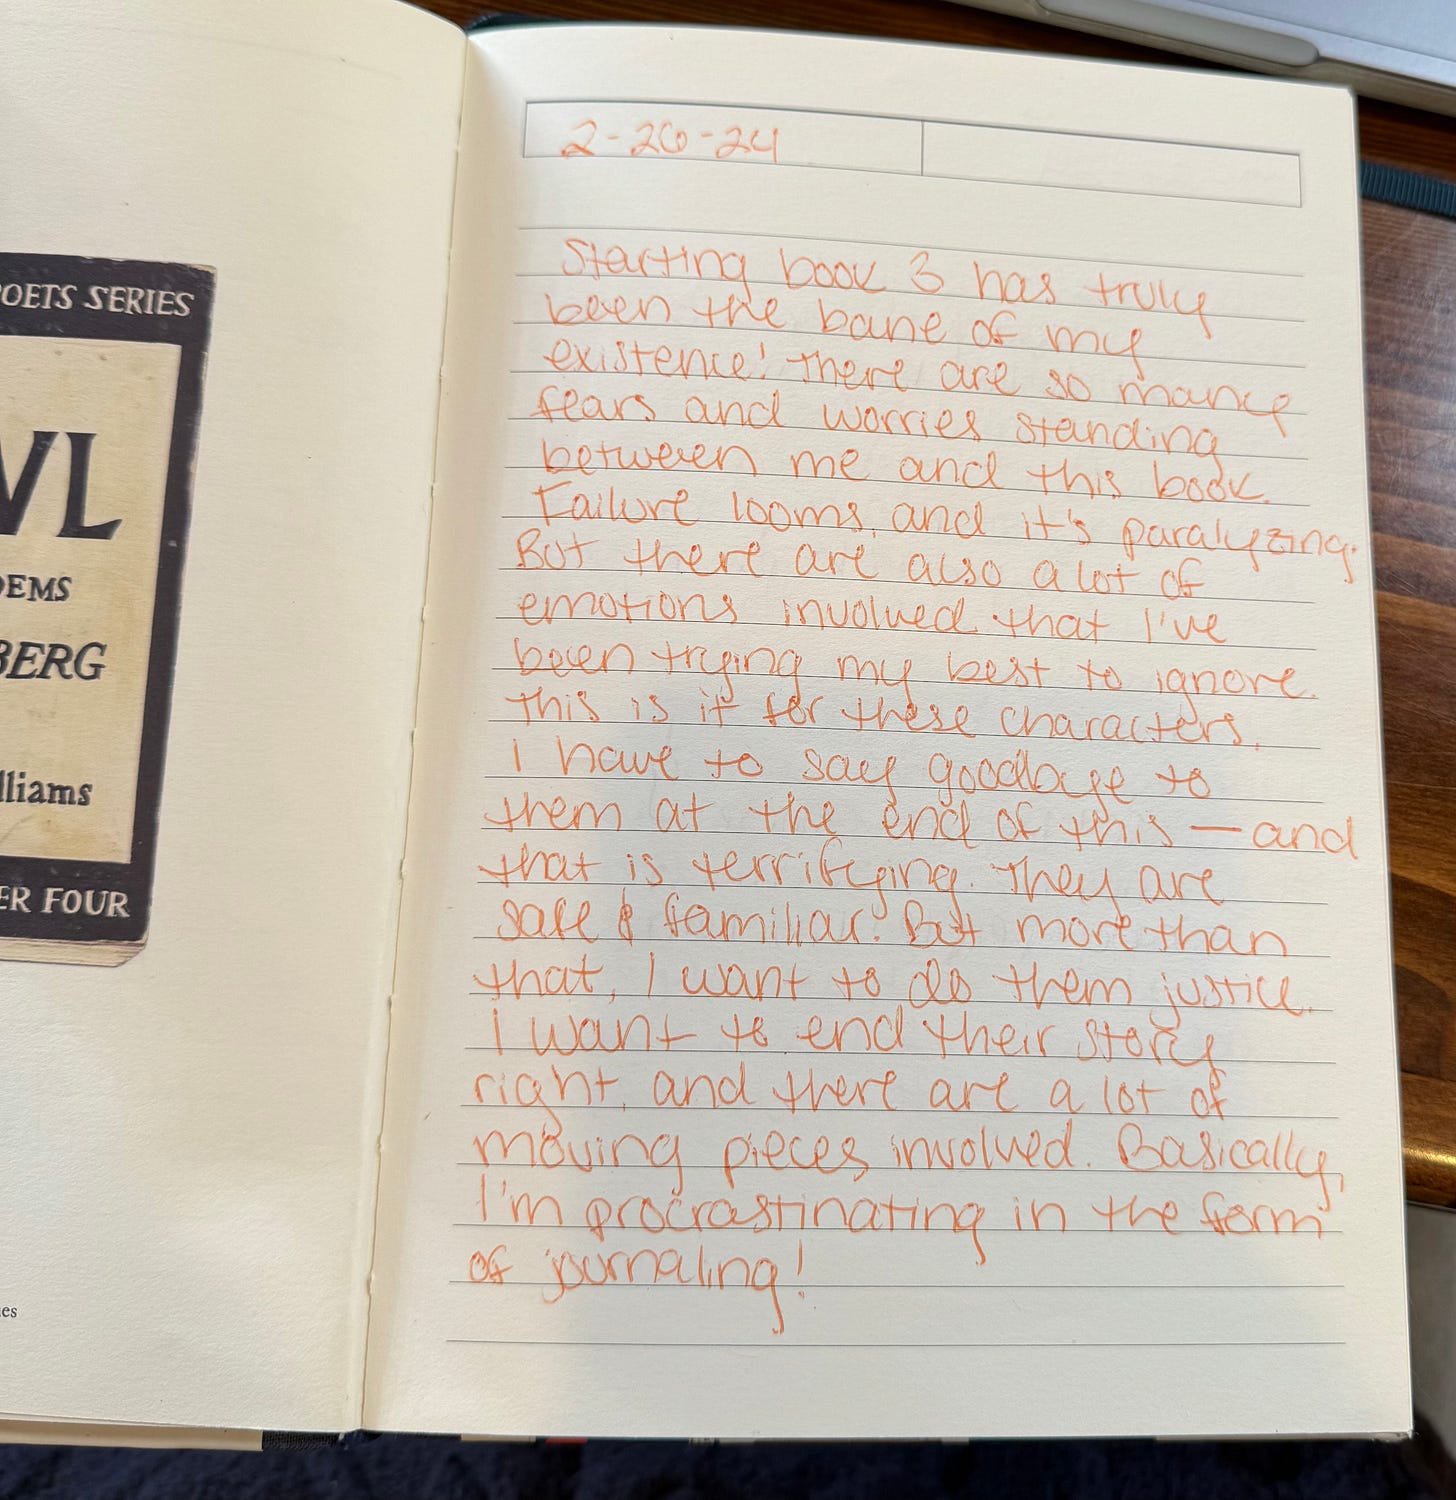 OETS SERIES
WL
OEMS
BERG
lliams
ER FOUR
es
2-26-24
Starting book 3 has truly
been the bane of my
existence! There are so many
fears and worries standing
between me and this book.
Failure looms, and it's paralyzing.
But there are also a lot of
emotions involved that I've
been trying my best to ignore.
This is it for these characters.
I have to say goodbye to
them at the end of this — and
that is terrifying. They are
safe & familiar. But more than
that, I want to do them justice.
I want to end their story
right, and there are a lot of
moving pieces involved. Basically,
I'm procrastinating in the form
of journaling!